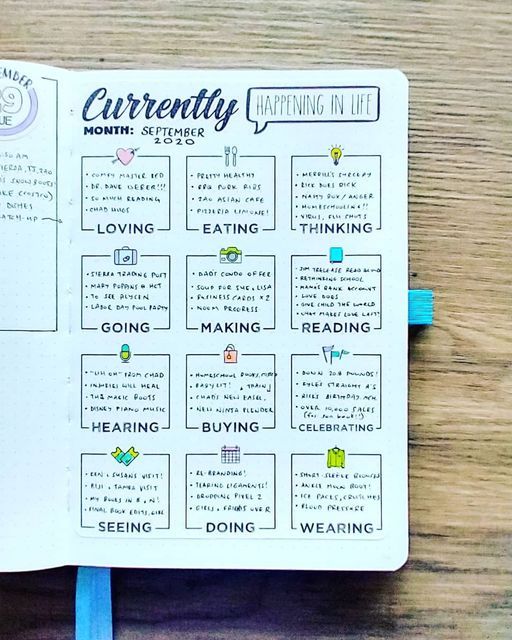 Currently
HAPPENING IN LIFE
MONTH: SEPTEMBER
2020
• COMFY MASTER BED
• DR. DAVE UEBER!!!
• SO MUCH READING
• CHAD HUGS
LOVING
• PRETTY HEALTHY
• BBQ PORK RIBS
• TAO ASIAN CAFE
• PIZZERIA LIMONE!
EATING
• MERRILL'S
• RICK DOES DICK
• NASTY BOY / ANGER
• HOMESCHOOLING!!
• VIRUS, FLU SHOTS
THINKING
• SIERRA TRADING POST
• MARY POPPINS @ HCT
• TO SEE ALYCEN
• LABOR DAY POOL PARTY
GOING
• DAD'S CONDO OFFER
• SOUP FOR SUE & LISA
• BUSINESS CARDS X2
• NOOM PROGRESS
MAKING
• JIM TRELEASE READ ALOUD
• RETHINKING SCHOOL
• MAMA'S BANK ACCOUNT
• LOVE DOES
• GIVE CHILD THE WORLD
• WHAT MAKES LOVE LAST?
READING
• "UH OH" FROM CHAD
• INJURIES WILL HEAL
• THE MAGIC BOOTS
• DISNEY PIANO MUSIC
HEARING
• HOMESCHOOL BOOKS,
• BABY LIT!
• CHAD'S NEW EASEL,
• NEW NINJA BLENDER
BUYING
• DOWN 20.8 POUNDS!
• KYLE'S STRAIGHT A'S
• BIRTHDAY,
• OVER 10,000 SALES
(for our book!!)
CELEBRATING
• KEN & SUSANS VISIT!
• TAMRA VISIT
• MY BOOKS IN B & N!
• FINAL BOOK EDITS,
SEEING
• RE-BRANDING!
• TEARING LIGAMENTS!
• DROPPING PIXEL 2
• GIRLS & FRIENDS OVER
DOING
• SHORT-SLEEVE
• ANKLE MOON BOOT!
• ICE PACKS, CRUTCHES
• BLOOD PRESSURE
WEARING